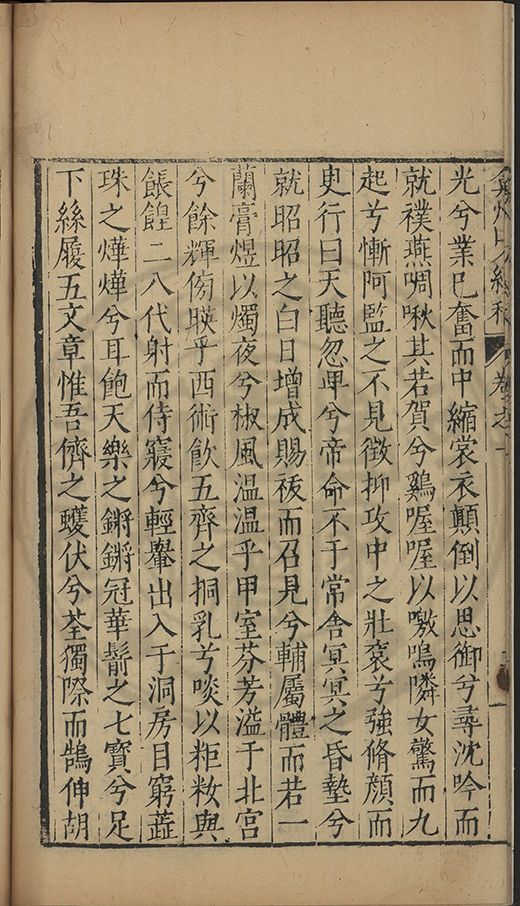 光兮業已奮而中縮裳衣顛倒以思御兮尋沈吟而
就襆燕啁啾其若賀兮鷄喔喔以噭鳴隣女驚而九
起兮慚阿監之不見徴抑攻中之壯裒兮強脩顔而
更行曰天聽忽卑兮帝命不于常舍冥冥之昏墊兮
就昭昭之白日增成賜祓而召見兮輔屬體而若一
蘭膏煜以燭夜兮椒風溫溫乎甲室芬芳溢于北宮
兮餘輝傍暎乎西術飲五齊之挏乳兮啖以粔籹與
餦餭二八代射而侍寢兮輕轝出入于洞房目窮蕋
珠之燁燁兮耳飽天樂之鏘鏘冠華鬋之七寶兮足
下絲履五文章惟吾儕之蠖伏兮荃獨際而鵠伸胡